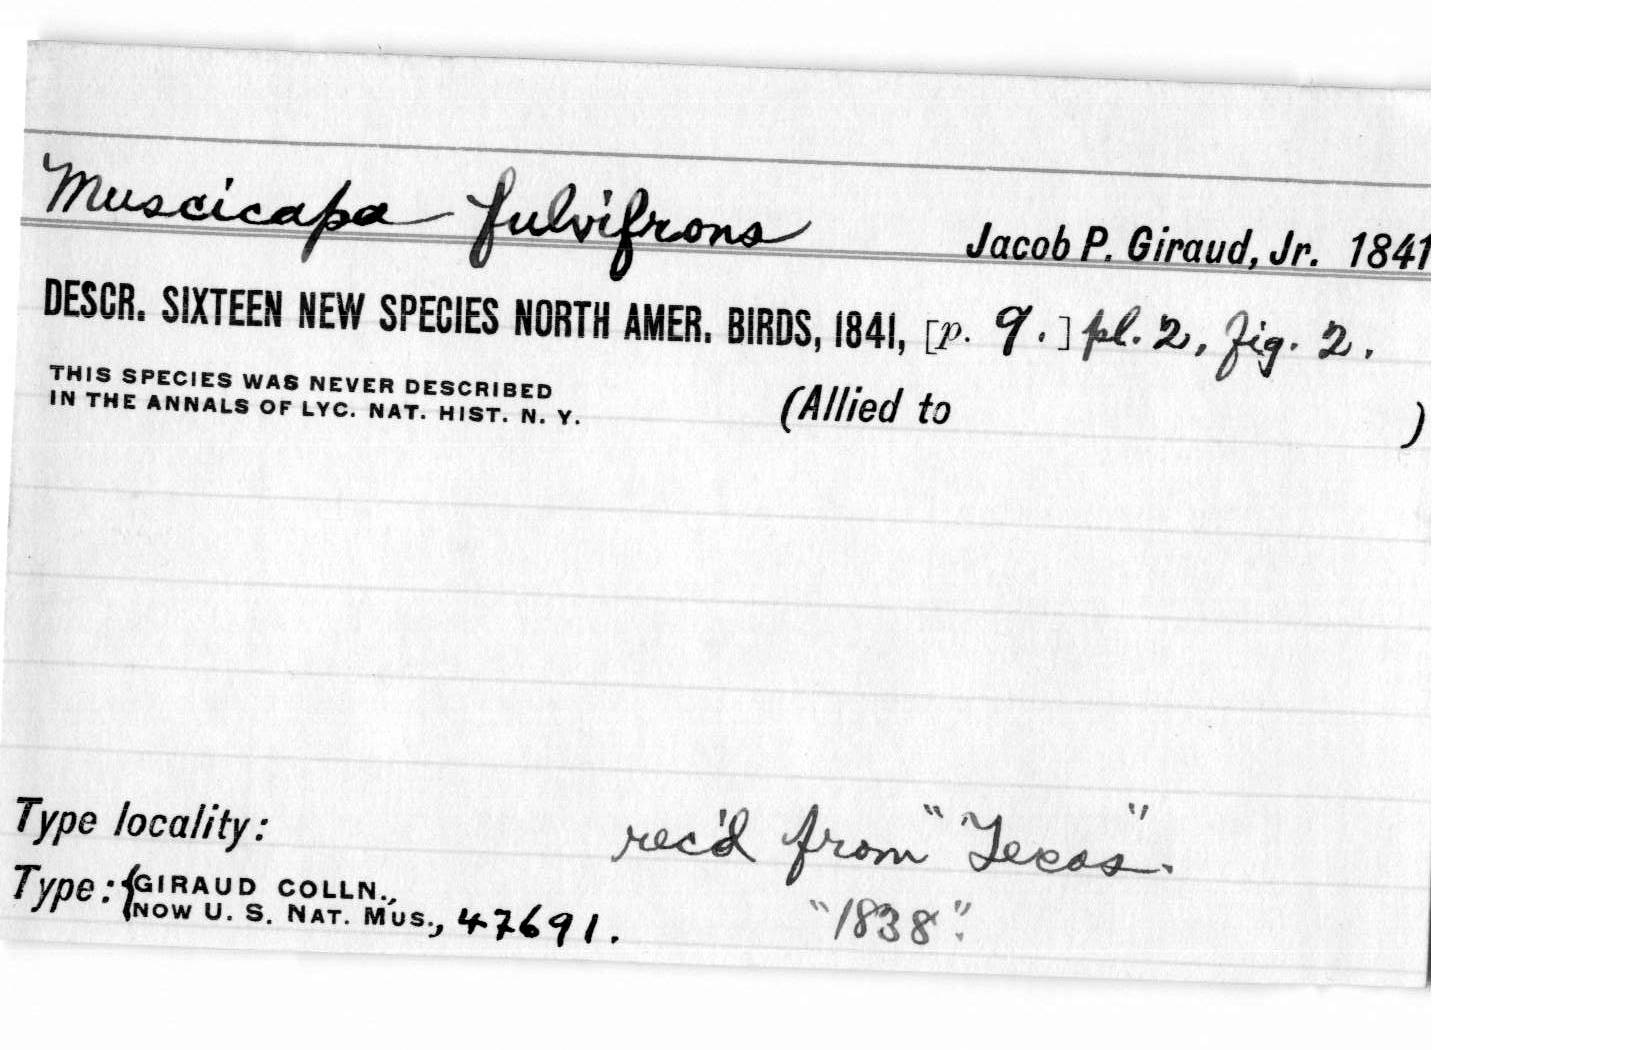 Muscicapa fulvifrons Jacob P. Giraud, Jr. 1841
DESCR. SIXTEEN NEW SPECIES NORTH AMER. BIRDS, 1841, [p. 9.] pl. 2, fig. 2.
THIS SPECIES WAS NEVER DESCRIBED
IN THE ANNALS OF LYC. NAT. HIST. N. Y.
(Allied to )
Type locality: rec'd from "Texas".
Type: {GIRAUD COLLN.,
NOW U. S. NAT. MUS., 47691. "1838".